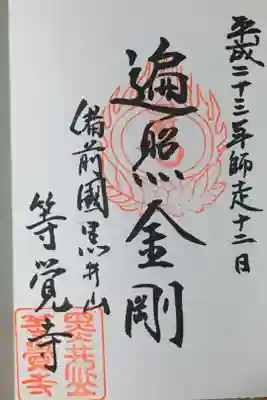 平成二十三年師走十二日
遍照金剛
備前國黒井山
等覚寺
黒井山
等覚寺